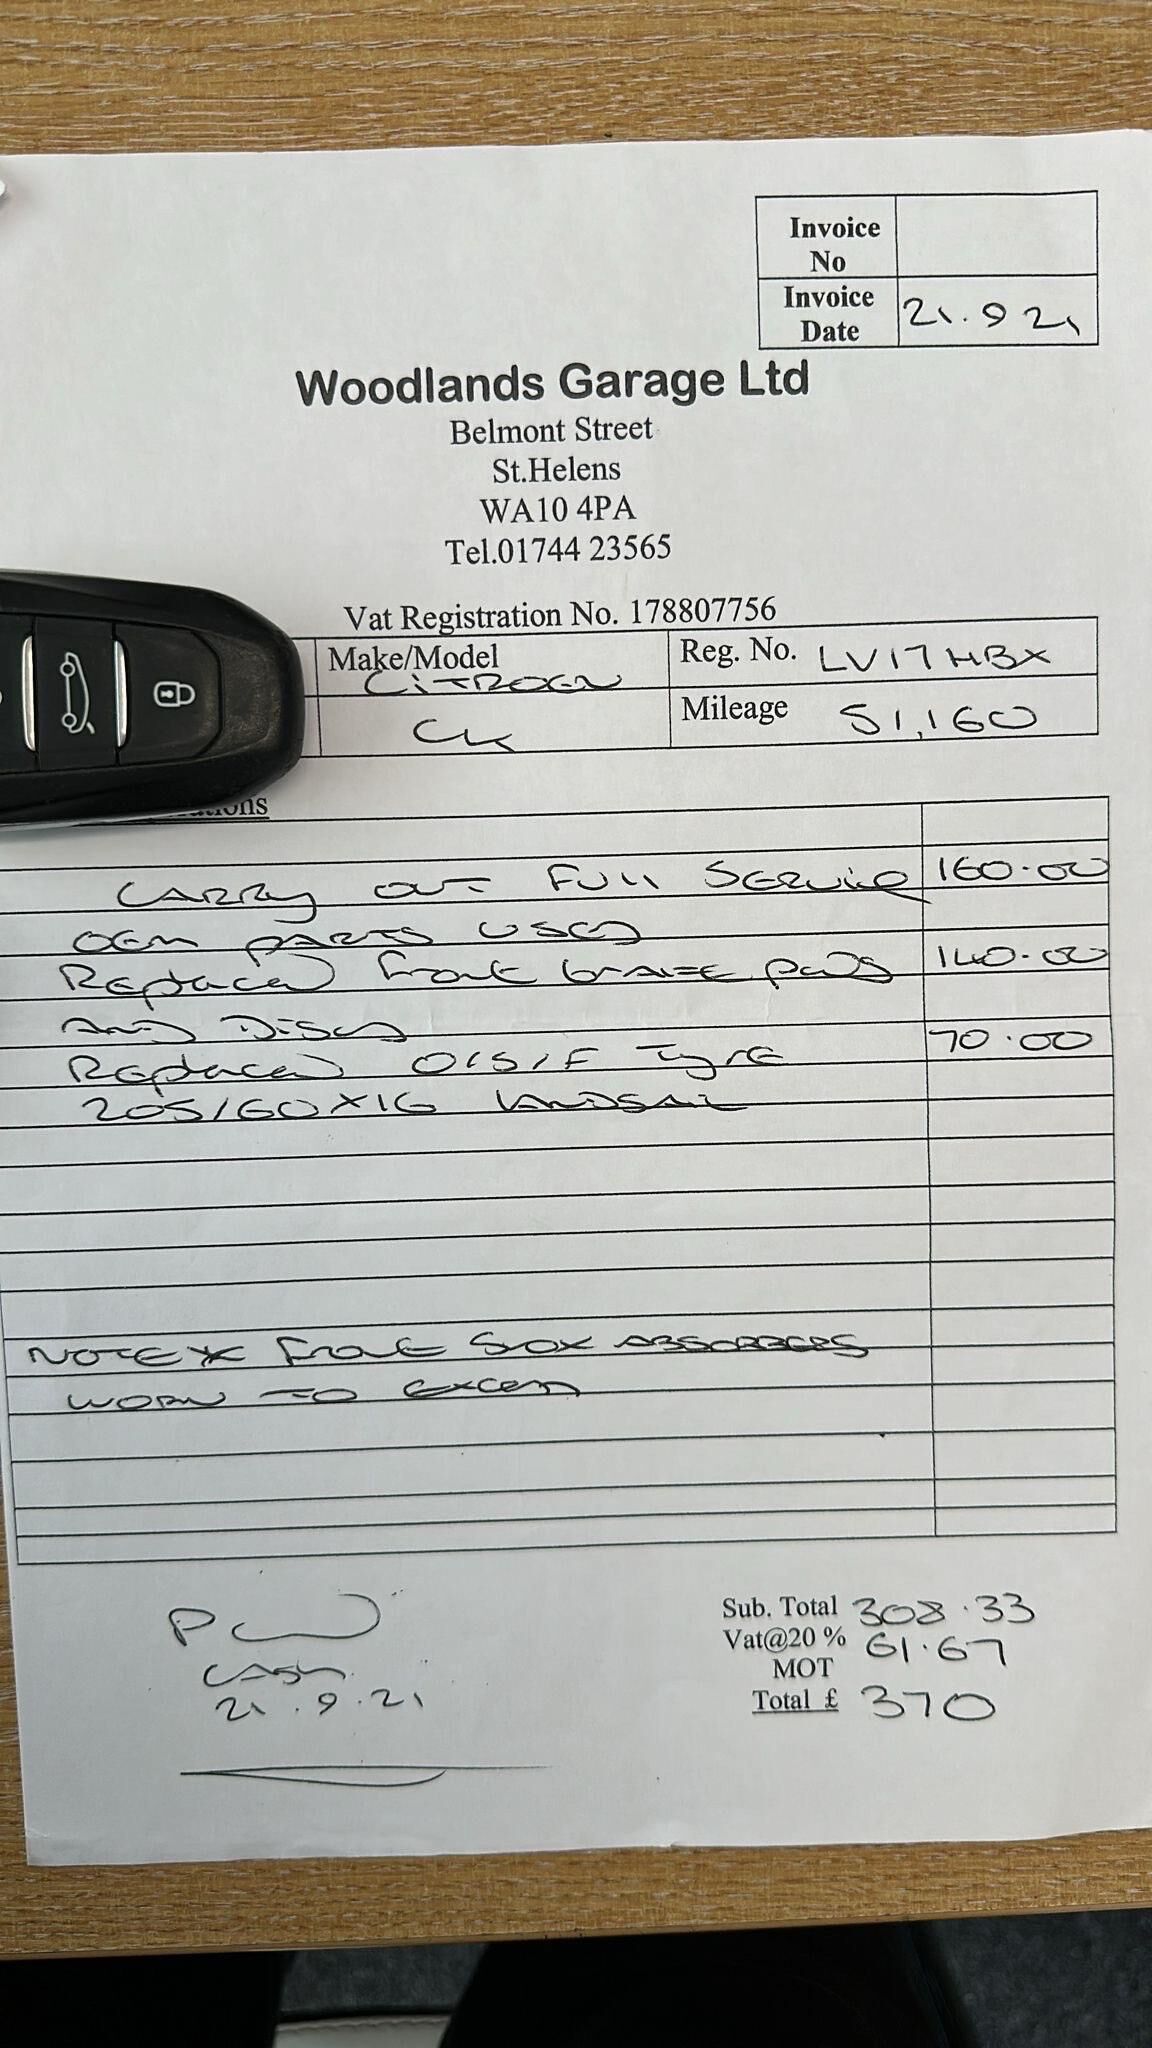 Invoice No
Invoice Date 21.9.21
Woodlands Garage Ltd
Belmont Street
St.Helens
WA10 4PA
Tel.01744 23565
Vat Registration No. 178807756
Make/Model CITROEN Reg. No. LV17HBX
C4 Mileage 51,160
CARRY OUT FULL SERVICE 160.00
OEM PARTS USED
Replaced Front BRAKE pads 140.00
AND DISCS
Replaced O/S/F Tyre 70.00
205/60X16 LANDSAIL
NOTE* FRONT SHOX ABSORBERS
WORN TO EXCESS
Sub. Total 308.33
Vat@20 % 61.67
MOT
Total £ 370
PAID
CASH
21.9.21